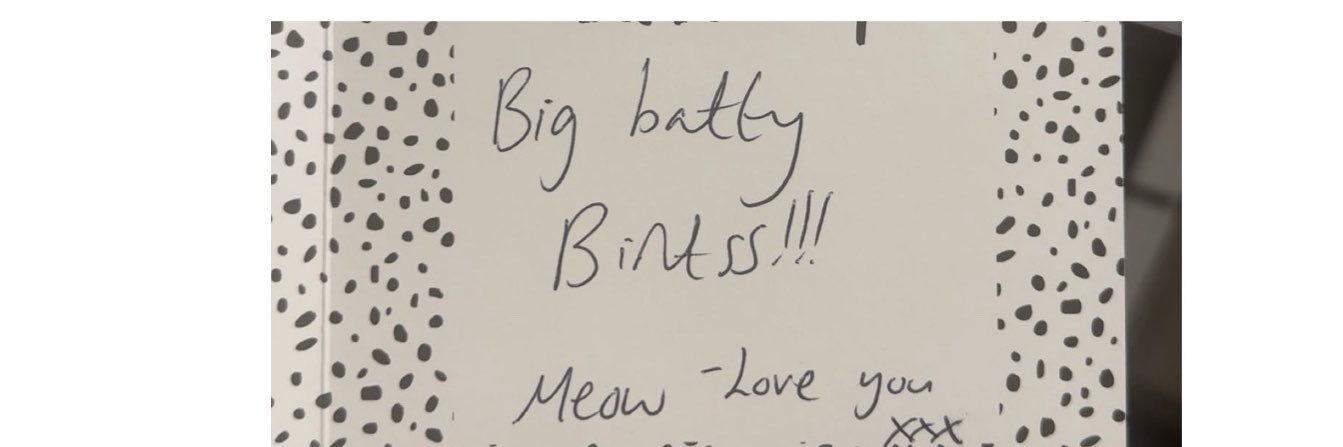 Big batty
Bintss!!!
Meow - Love you
xxx